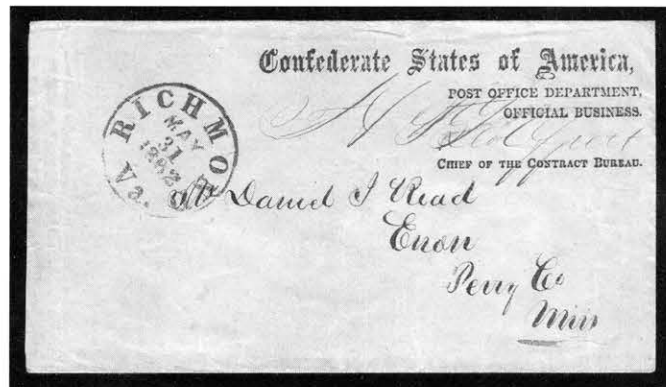 Confederate States of America,
POST OFFICE DEPARTMENT,
OFFICIAL BUSINESS.
CHIEF OF THE CONTRACT BUREAU.
RICHMOND
MAY
31
1862
Va.
Mr Daniel J Read
Enon
Perry Co
Miss